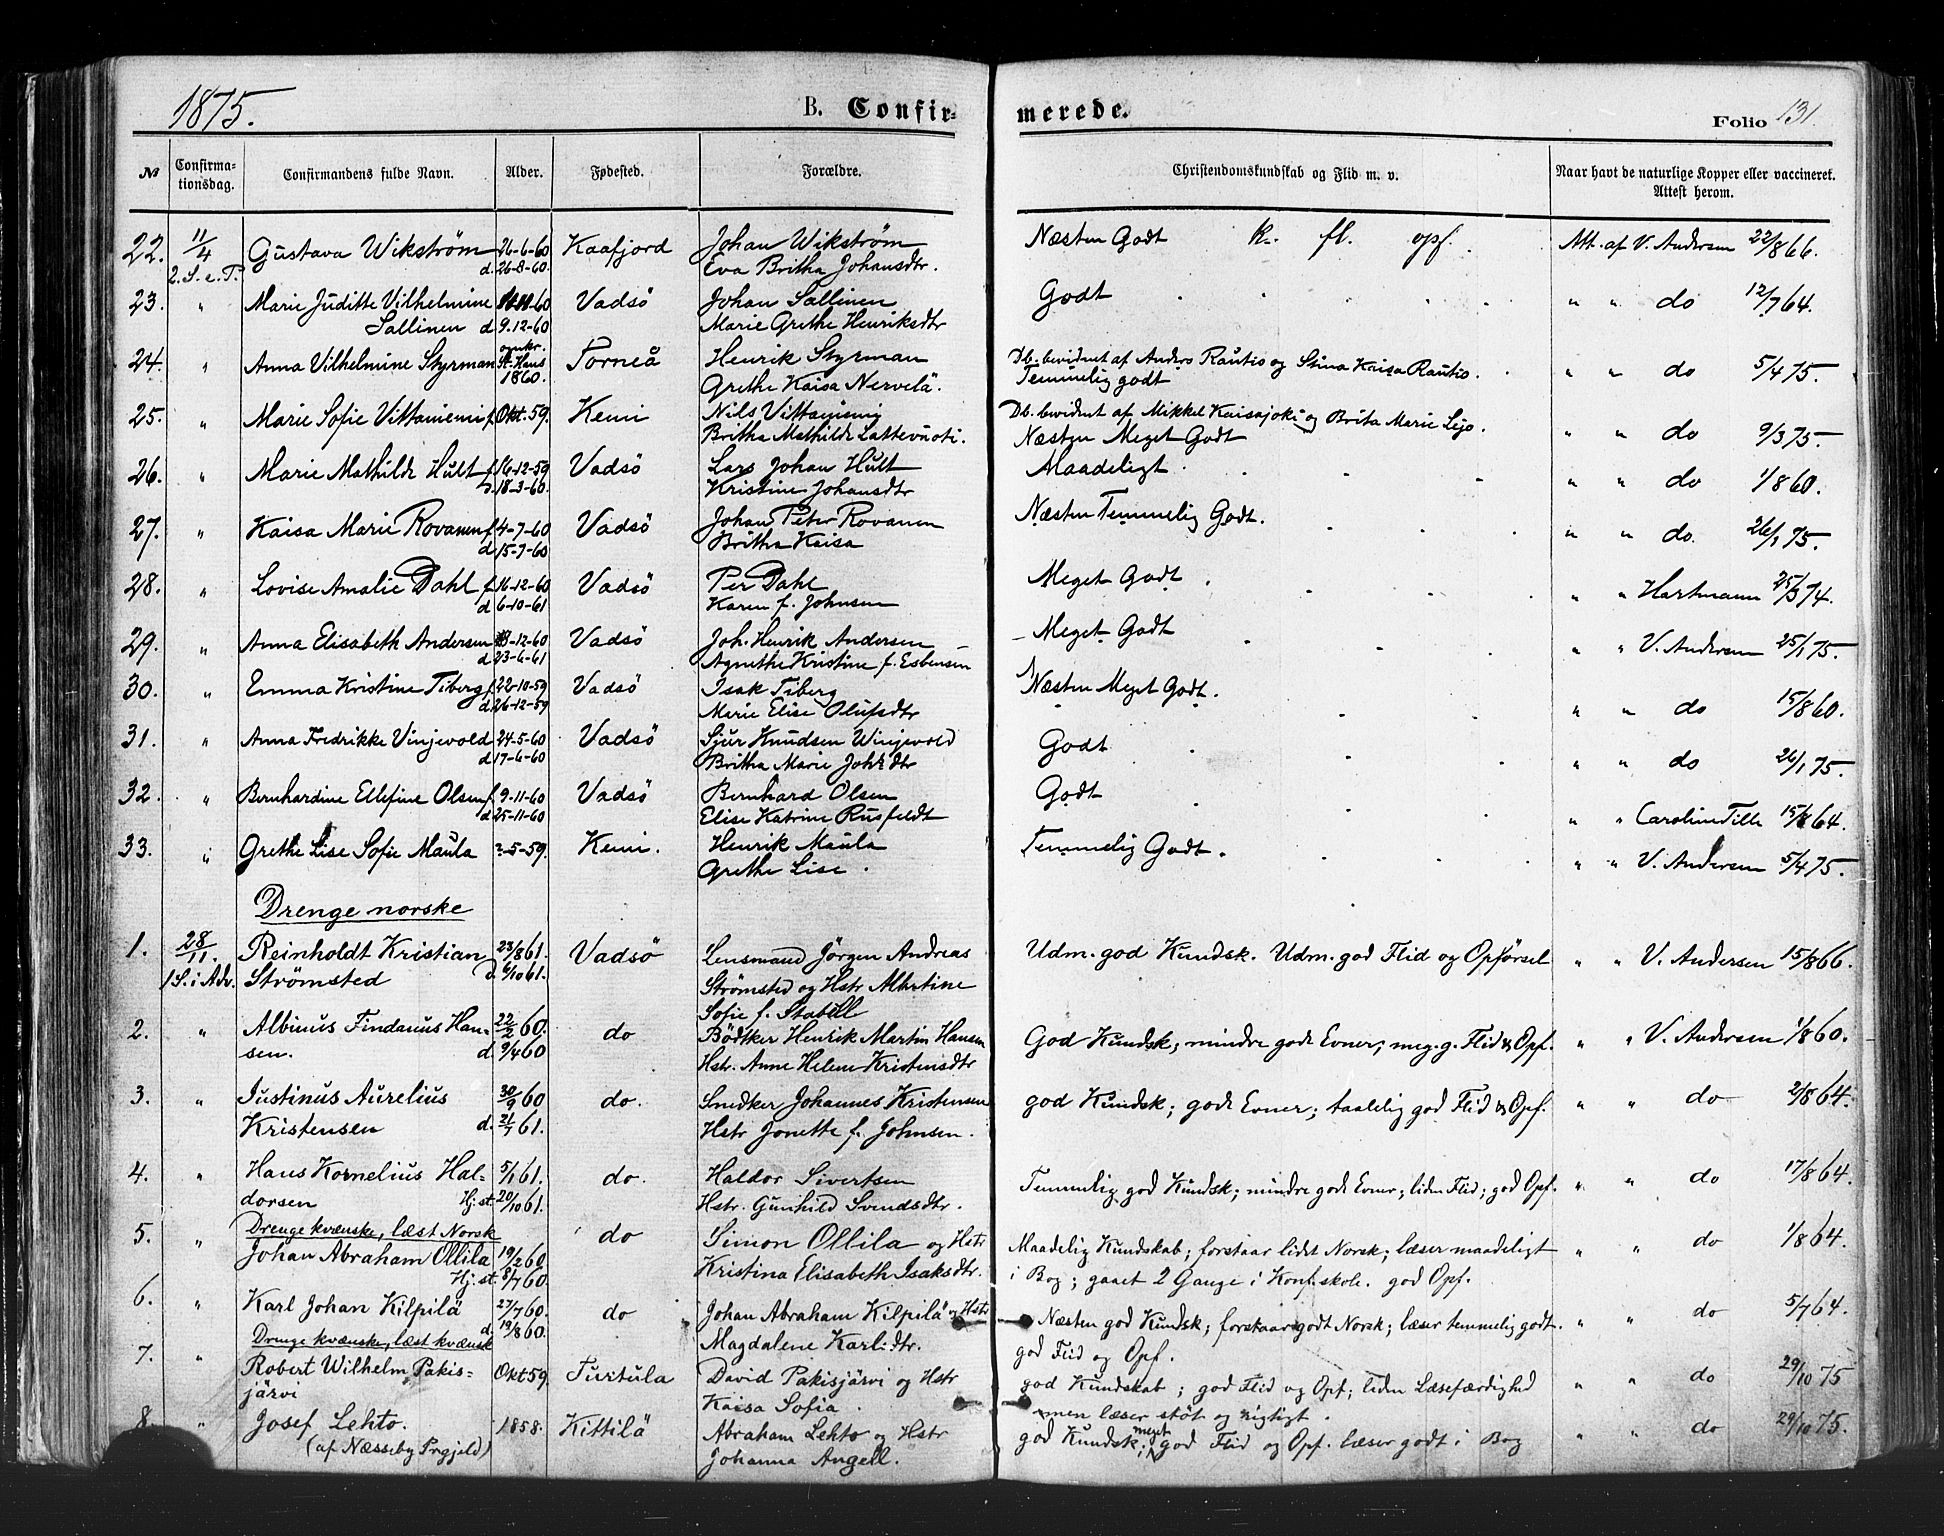 1875.
B. Confirmerede.
Folio 131
№ Confirmationsdag. Confirmandens fulde Navn. Alder. Fødested. Forældre. Christendomskundskab og Flid m. v. Naar havt de naturlige Kopper eller vaccineret. Attest herom.
22. 11/4 Gustava Wikström 26-6-60 Kaafjord Johan Wikström Næsten Godt k. fl. opf. Att. af V. Andersen 22/8 66.
2. S. e. P. d. 26-8-60. Eva Britha Johansdtr.
23. " Marie Juditte Vilhelmine 11-60 Vadsö Johan Sallinen Godt " " do 12/7 64.
Sallinen d. 9-12-60 Marie Grethe Henriksdtr
24. " Anna Vilhelmine Styrman omkr. St. Hans 1860. Torneå Henrik Styrman Db. bevidnet af Anders Rautio og Stina Kaisa Rautio. " " do 5/4 75.
Grethe Kaisa Nervelä. Temmelig godt
25. " Marie Sofie Vittaniemi f. Okt. 59. Kemi Nils Vittaniemi Db. bevidnet af Mikkel Kaisajoki og Brita Marie Lejo. " " do 9/3 75.
Britha Mathilde Lattevuoti. Næsten Meget Godt
26. " Marie Mathilde Hult f. 16-12-59 Vadsö Lars Johan Hult Maadeligt " " do 1/8 60.
D. 18-3-60. Kristine Johansdtr
27. " Kaisa Marie Rovanen f. 4-7-60 Vadsö Johan Peter Rovanen Næsten Temmelig Godt. " " do. 26/1 75.
d. 15-7-60 Britha Kaisa
28. " Lovise Amalie Dahl f. 16-12-60 Vadsö Per Dahl Meget Godt. " " Hartmann 25/3 74.
d. 6-10-61 Karen f. Johnsen
29. " Anna Elisabeth Andersen 3-12-60 Vadsö Joh. Henrik Andersen Meget Godt " " V. Andersen 25/1 75.
d. 23-6-61 Agnethe Kristine f. Esbensen
30. " Emma Kristine Tiberg f. 22-10-59 Vadsö Isak Tiberg Næsten Meget Godt. " " do 15/8 60.
d. 26-12-59 Marie Elise Olufsdtr
31. " Anna Fredrikke Vinjevold 24-5-60 Vadsö Sjur Knudsen Winjevold Godt " " do 26/1 75.
d. 17-6-60 Britha Marie Johsdtr
32. " Bernhardine Ellefine Olsen f. 9-11-60 Vadsö Bernhard Olsen Godt " " Caroline Tille 15/8 64.
d. 25-11-60 Elise Katrine Rusfeldt
33. " Grethe Lise Sofie Maula ?-5-59. Kemi. Henrik Maula Temmelig Godt. " " V. Andersen 5/4 75.
Grethe Lise.
Drenge norske
1. 28/11. Reinholdt Kristian 23/8 61. Vadsö Lensmand Jörgen Andreas Udm. god Kundsk. Udm. god Flid og Opförsel " " V. Andersen 15/8 66.
1 S. i Adv. Strömsted D. 6/10 61. Strömsted og Hstr Albertine
Sofie f. Stabell
2. " Albinus Findanus Han- 22/2 60. do Bödtker Henrik Martin Hansen God Kundsk; mindre gode Evner; meg. g. Flid & Opf. " " V. Andersen 1/8 60.
sen. d. 9/4 60 Hstr. Anne Helene Kristensdtr
3. " Justinus Aurelius 30/9 60 do. Snedker Johannes Kristensen god Kundsk; gode Evner; taalelig god Flid & Opf. " " do 2/8 64.
Kristensen d. 21/7 61. Hstr Jonette f. Johnsen.
4. " Hans Kornelius Hal- 5/1 61. do. Haldor Sivertsen Temmelig god Kundsk; mindre gode Evner; liden Flid; god Opf. " " do 17/8 64.
dorsen Hj. st. 20/10 61. Hstr. Gunhild Svendsdtr.
Drenge kvænske, læst Norsk
5. " Johan Abraham Ollila 19/2 60 do Simon Ollila og Hstr Maadelig Kundskab; forstaar lidet Norsk; læser maadeligt " " do 1/8 64.
Hj. st. 8/7 60. Kristina Elisabeth Isaksdtr. i Bog; gaaet 2 Gange i Konf. skole. god Opf.
6. " Karl Johan Kilpilä 27/7 60. do Johan Abraham Kilpilä og Hstr Næsten god Kundsk; forstaar godt Norsk; læser temmelig godt. " " do 5/7 64.
d. 19/8 60. Magdalene Karl:dtr. god Flid og Opf.
Drenge kvænske, læst kvænsk
7. " Robert Wilhelm Pakis- Okt 59. Turtula David Pakisjärvi og Hstr god Kundskab; god Flid og Opf; liden Læsefærdighed " " do 29/10 75
järvi Kaisa Sofia. men læser støt og rigtigt.
8. " Josef Lehto. 1858. Kittilä Abraham Lehto og Hstr god Kundsk; meget god Flid og Opf. læser godt i Bog " " do 29/10 75.
(af Næsseby Prgjeld) Johanna Angell.